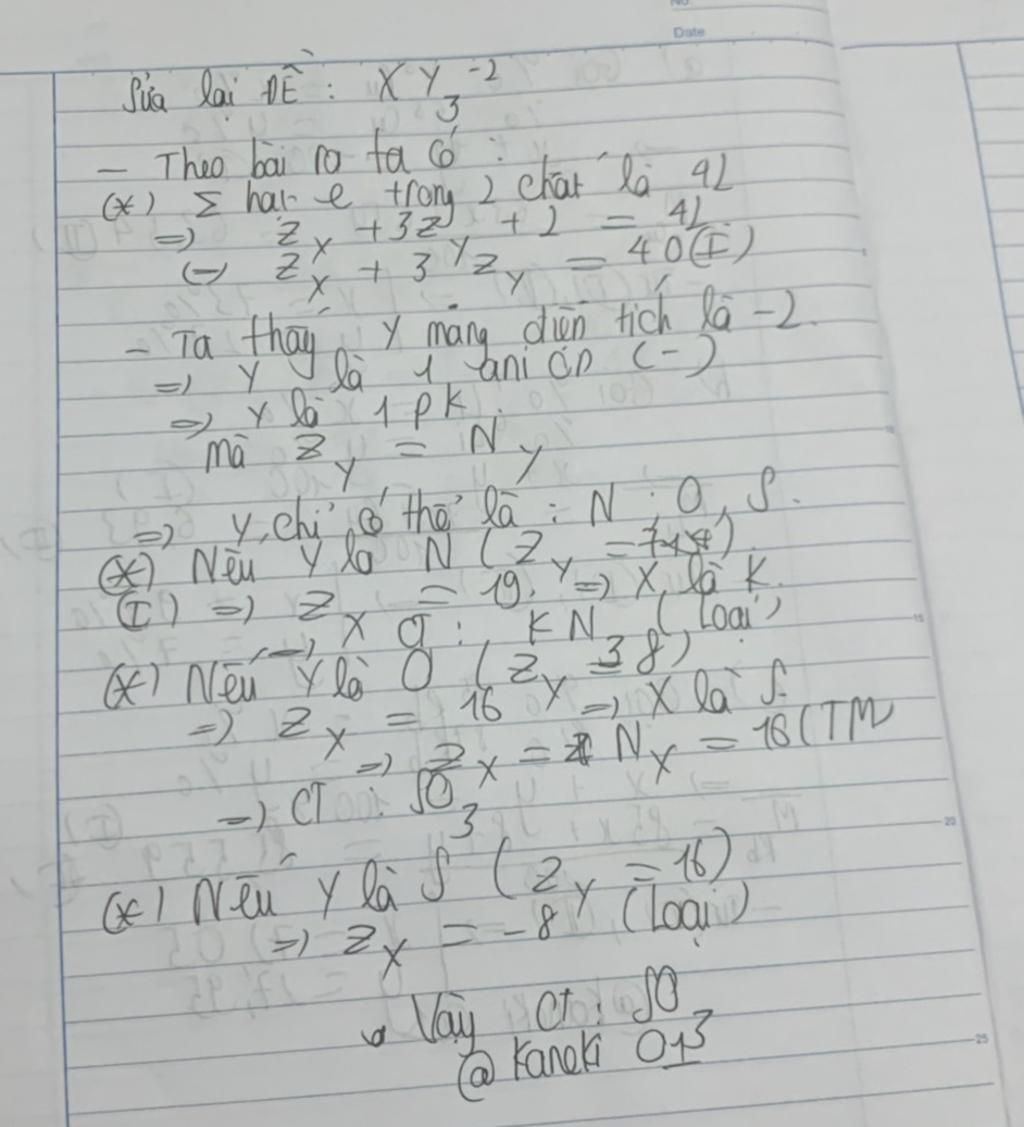 No.
Date
Sửa lại ĐỀ : XY₃⁻²
- Theo bài ra ta có :
(*) Σ hạt e trong 2 chất là 42
=> Z_X + 3Z_Y + 2 = 42
(=) Z_X + 3Z_Y = 40 (I)
- Ta thấy Y mang điện tích là -2.
=> Y là 1 anion (-)
=> Y là 1 pk.
Mà Z_Y = N_Y
=> Y chỉ có thể là : N, O, S.
(*) Nếu Y là N (Z_Y = 7)
(I) => Z_X = 19. => X là K.
=> CT : KN₃ (loại)
(*) Nếu Y là O (Z_Y = 8)
=> Z_X = 16 => X là S.
=> Z_X = N_X = 16 (TM
=) CT : SO₃
(*) Nếu Y là S (Z_Y = 16)
=> Z_X = -8 (Loại)
Vậy CT : SO₃
@ Kaneki 01
5
10
15
20
25